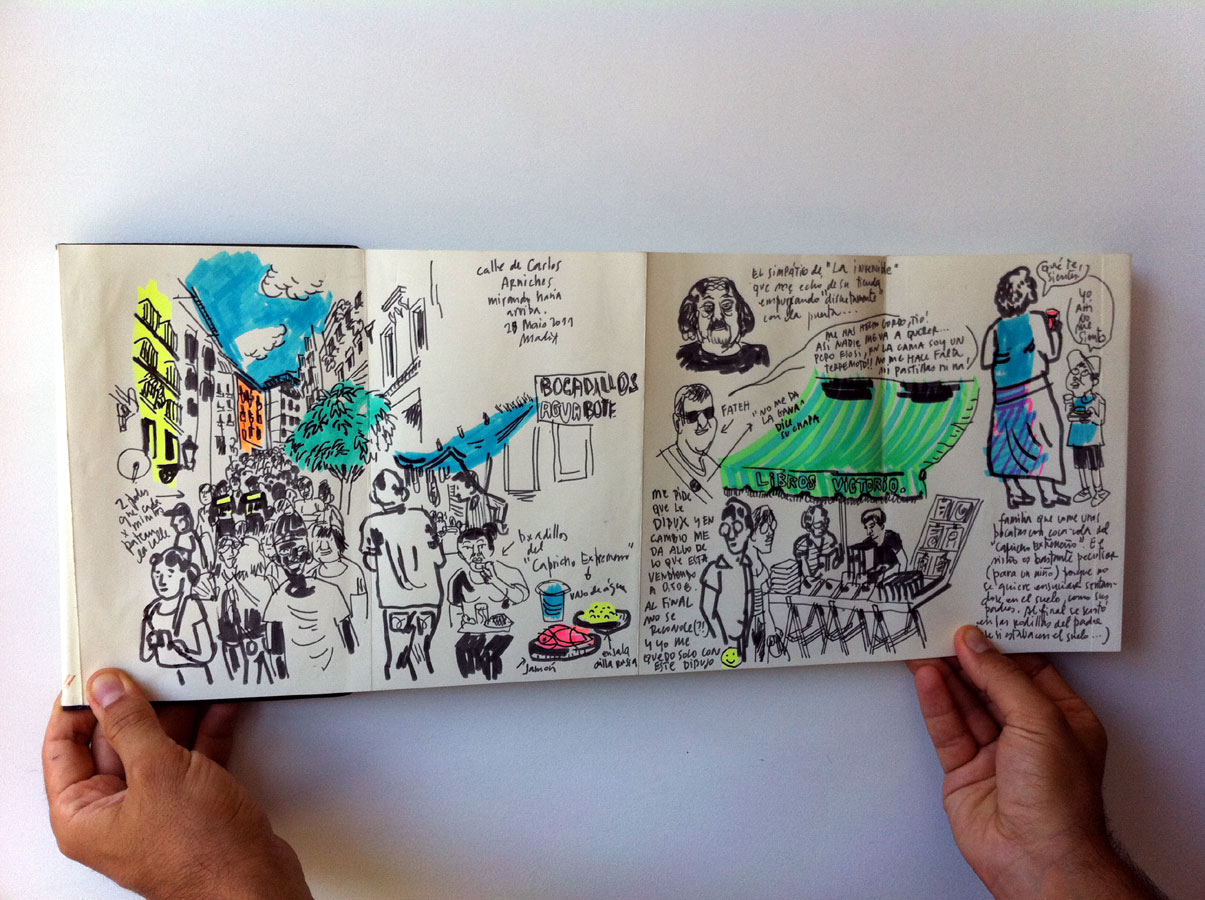 calle de Carlos
Arniches
mirando hacia
arriba.
28 Maio 2011
Madrid
BOCADILLOS
AGUA BOTE
2 polis
que cada
x minutos
patean
la calle
bocadillos
del
"Capricho Extremeño"
vaso de agua
Jamón
ensala
dilla rusa
EL SIMPÁTICO DE "LA INVENCIBLE"
que me echó de su tienda
empujando "discretamente"
con la puerta...
ME HAS HECHO GORDO, TÍO!
ASÍ NADIE ME VA A QUERER...
PERO ECIS!, EN LA CAMA SOY UN
TERREMOTO!! NO ME HACE FALTA
NI PASTILLAS NI NA!
FATEH
"NO ME DA
LA GANA"
DICE
SU CHAPA
LIBROS VICTORIO.
ME PIDE
QUE LE
DIBUJE Y EN
CAMBIO ME
DA ALGO DE
LO QUE ESTÁ
VENDIENDO
A 0,50 €.
AL FINAL
NO SE
RECONOCE(?!)
Y YO ME
QUEDO SOLO CON
ESTE DIBUJO
¡Qué te
sientes!
yo
ahí
no
me
siento
familia que come unas
tostas con coca-cola del
"Capricho Extremeño" El
niño es bastante peculiar
(para un niño) porque no
se quiere ensuciar sentan-
dose en el suelo, como sus
padres. Al final se sentó
en las rodillas del padre
(que si estaba en el suelo...)